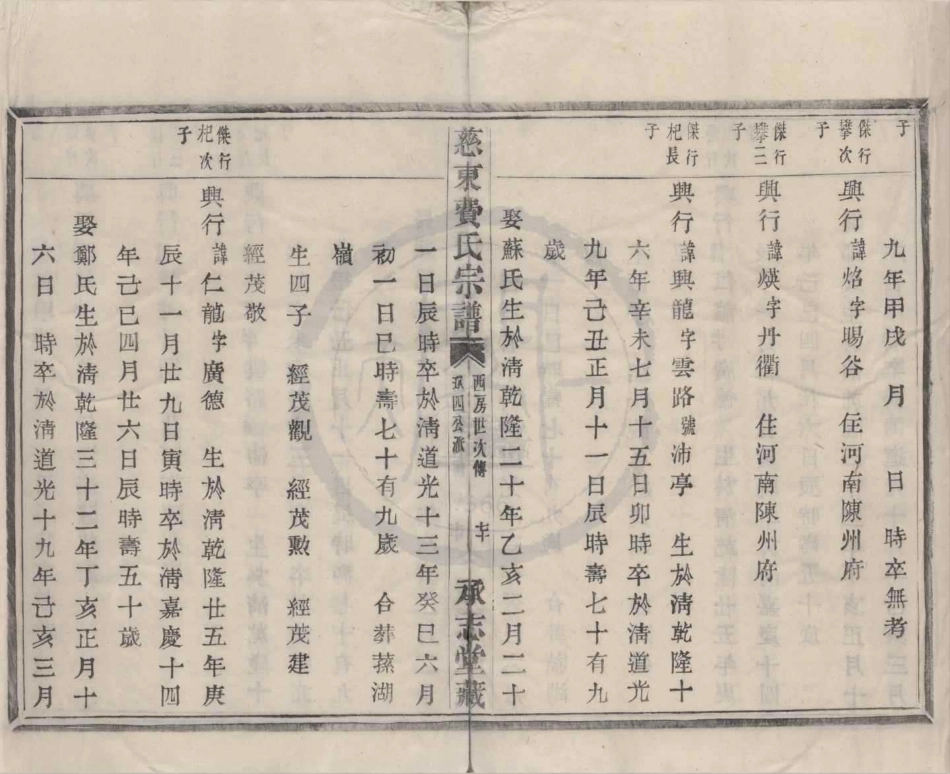 子
九年甲戌 月 日 時卒無考
傑行
攀次
子
興行諱焰字暘谷 住河南陳州府
傑行
攀二
子
興行諱煐字丹衢 住河南陳州府
傑行
杞長
子
興行諱興龍字雲路號沛亭 生於清乾隆十
六年辛未七月十五日卯時卒於清道光
九年己丑正月十一日辰時壽七十有九
歲
娶蘇氏生於清乾隆二十年乙亥二月二十
慈東費氏宗譜
西房世次傳
四公派
承志堂藏
一日辰時卒於清道光十三年癸巳六月
初一日巳時壽七十有九歲 合葬蓀湖
嶺
生四子 經茂觀 經茂勲 經茂建
經茂敬
傑行
杞次
子
興行諱仁龍字廣德 生於清乾隆廿五年庚
辰十一月廿九日寅時卒於清嘉慶十四
年己巳四月廿六日辰時壽五十歲
娶鄭氏生於清乾隆三十二年丁亥正月十
六日 時卒於清道光十九年己亥三月